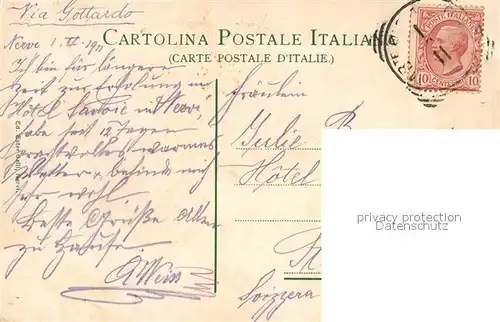 Via Gottardo
Nervi, 1. II. 1911
CARTOLINA POSTALE ITALIANA
(CARTE POSTALE D'ITALIE.)
POSTE ITALIANE
10 CENTESIMI 10
Ich bin für längere
Zeit zur Erholung in
Hôtel Savoie in Nervi,
habe seit 12 Tagen
prachtvolles warmes
Wetter & befinde mich
sehr wohl
Beste Grüße Allen
zu Hause.
A Weiss
Fräulein
Julie B
Hôtel
Svizzera
privacy protection
Datenschutz